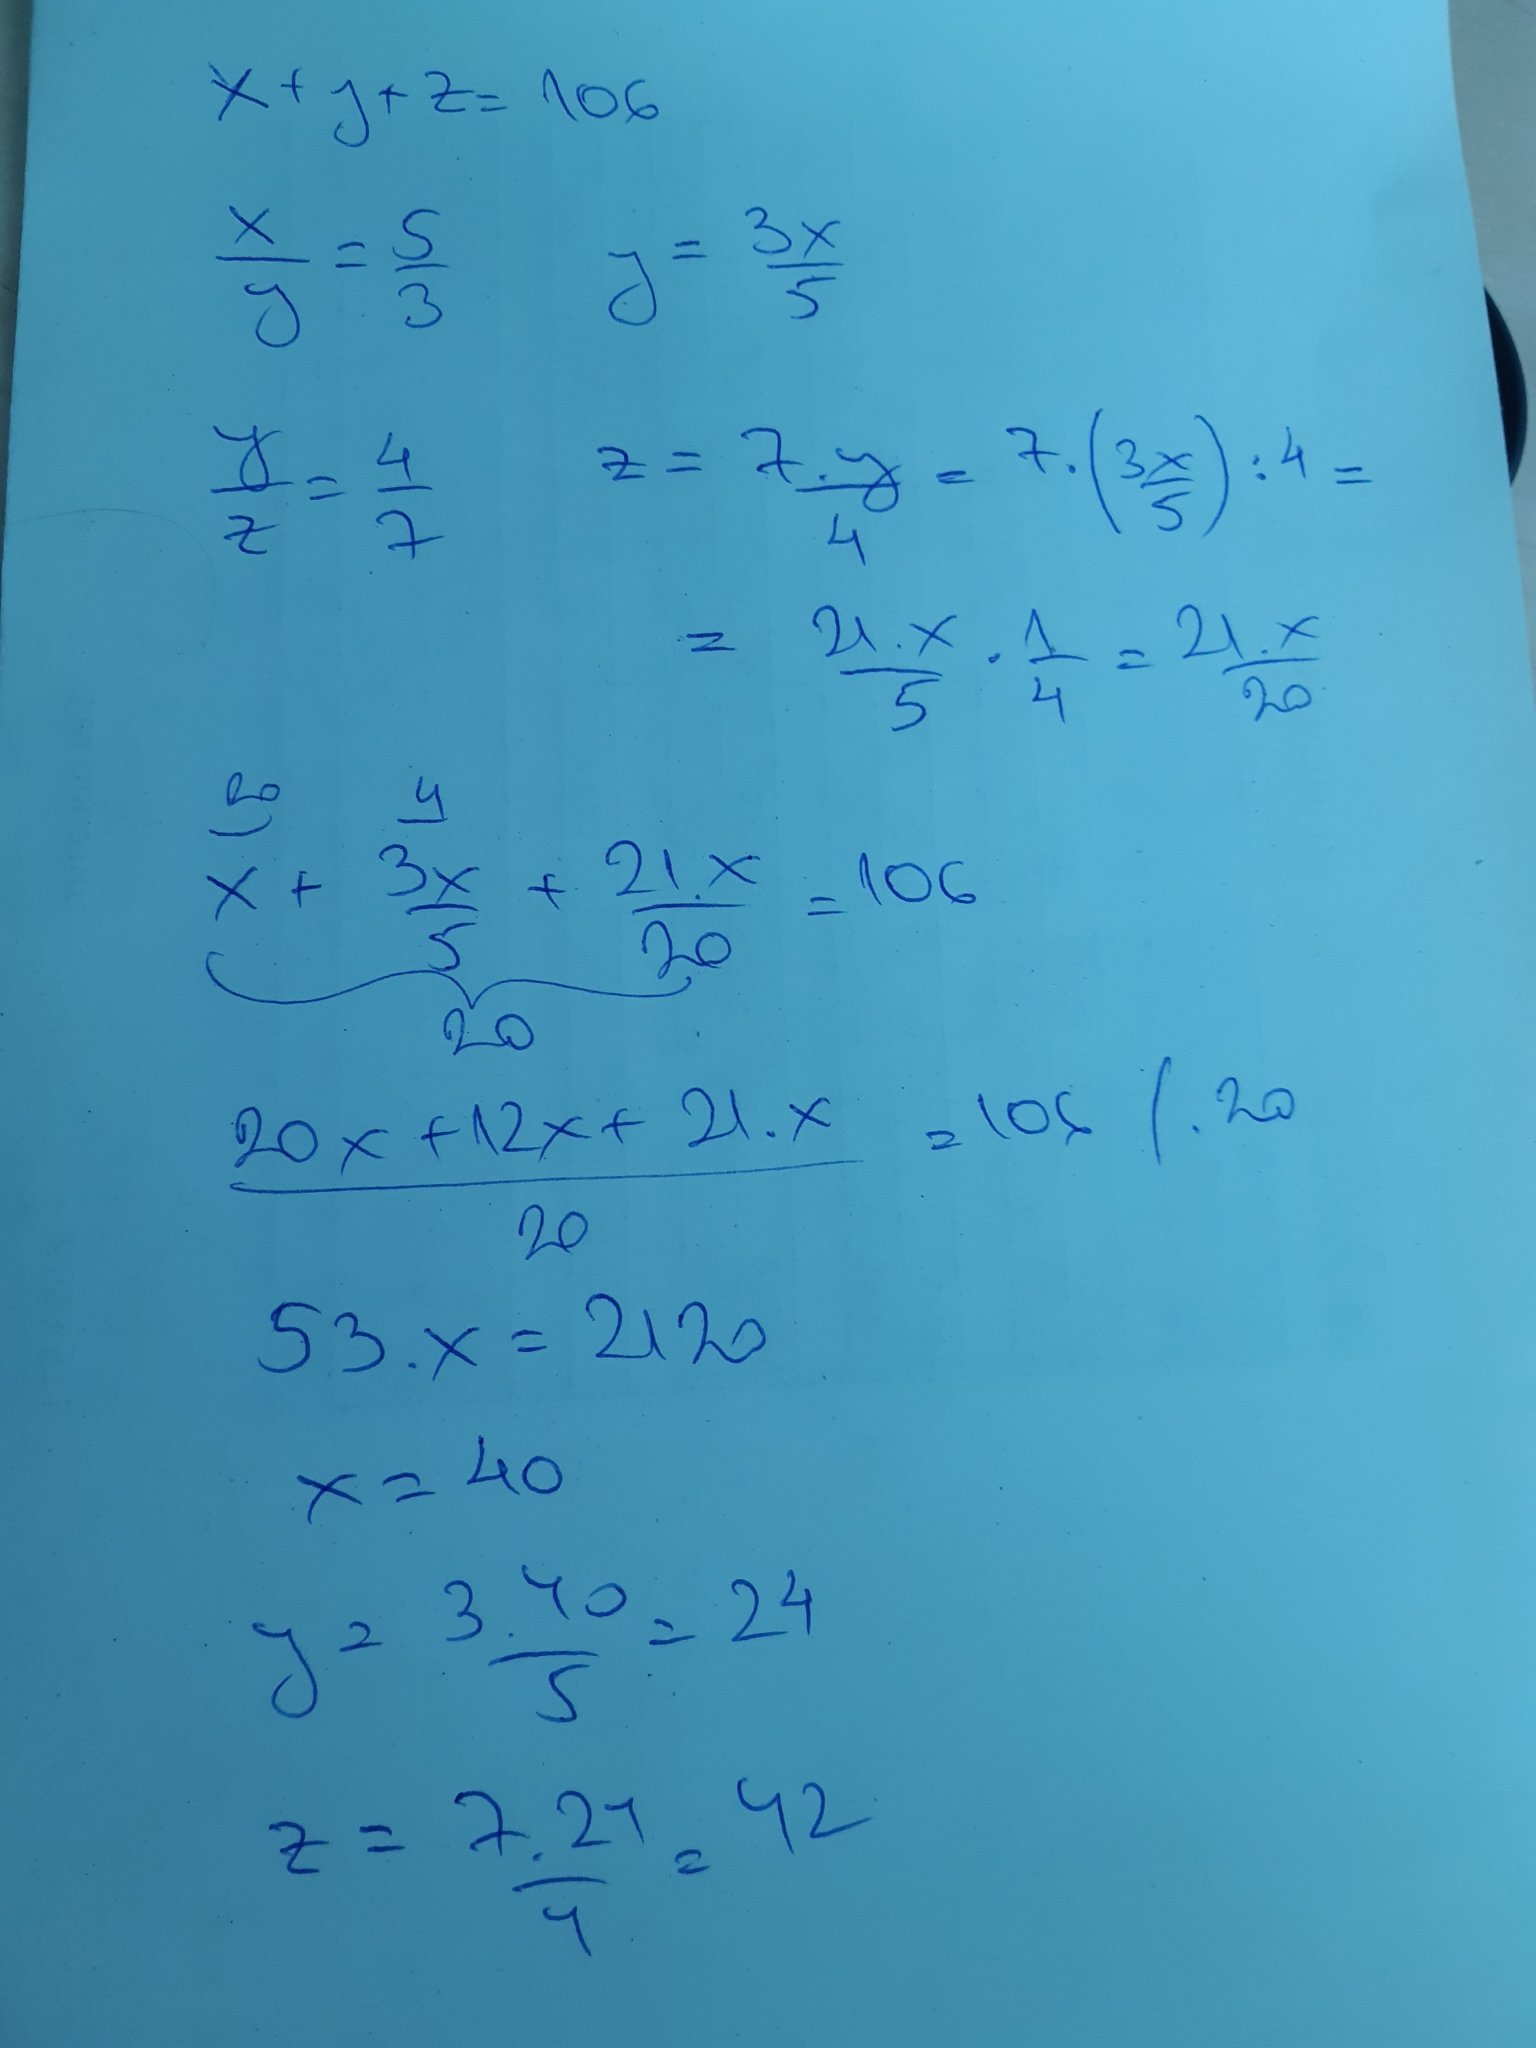 x + y + z = 106
x/y = 5/3   y = 3x/5
y/z = 4/7   z = 7.y/4 = 7.(3x/5) : 4 =
= 21.x/5 . 1/4 = 21.x/20
20 4
x + 3x/5 + 21.x/20 = 106
20
20x + 12x + 21.x / 20 = 106 /. 20
53.x = 2120
x = 40
y = 3.40/5 = 24
z = 7.24/4 = 42